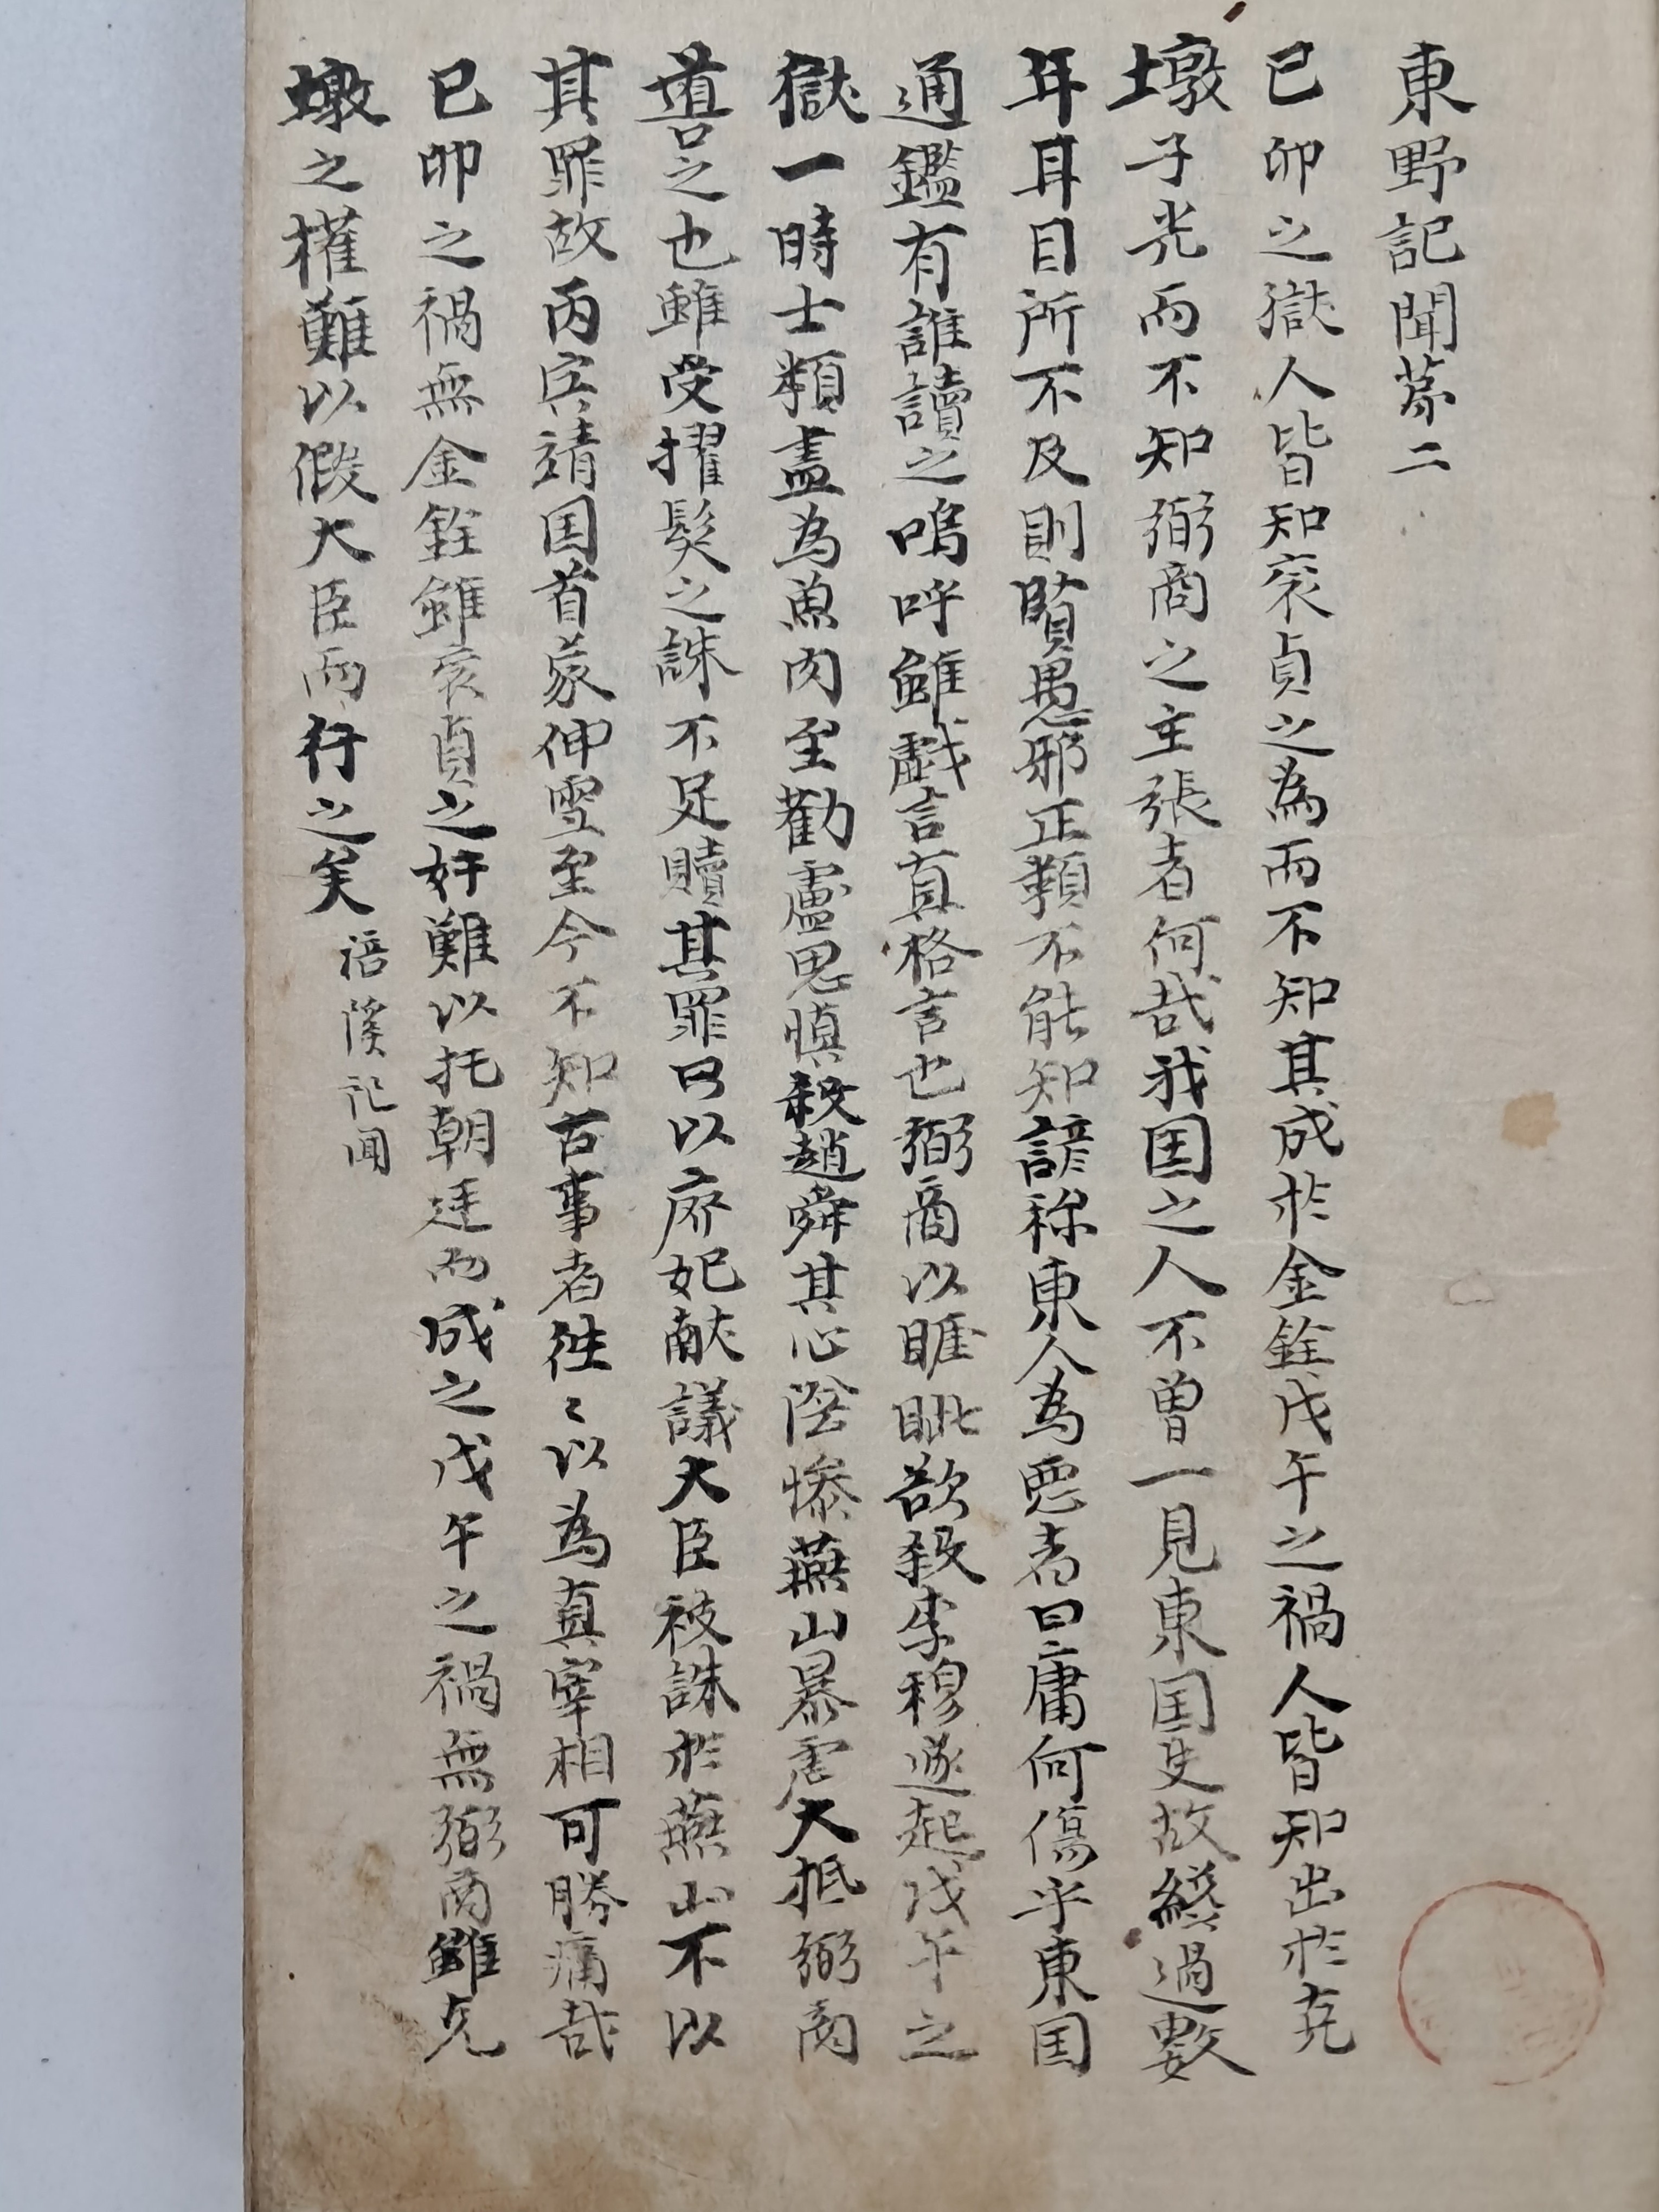 東野記聞苐二
己卯之獄人皆知衮貞之為而不知其成於金銓戊午之禍人皆知出於克
墩子光而不知弼商之主張者何哉我囯之人不曾一見東囯史故纔過數
年耳目所不及則賢愚邪正類不能知諺称東人為惡者曰庸何傷乎東囯
通鑑有誰讀之嗚呼雖戱言真格言也弼商以睚眦欲殺李穆遂起戊午之
獄一時士類盡為魚肉至勸盧思慎殺趙舜其心陰惨燕山暴虐大抵弼商
噵之也雖受擢髮之誅不足贖其罪只以廢妃献議大臣被誅於燕山不以
其罪故丙寅靖囯首蒙伸雪至今不知古事者徃〻以為真宰相可勝痛哉
己卯之禍無金銓雖衮貞之奸難以托朝廷而成之戊午之禍無弼商雖克
墩之權難以假大臣而行之矣 涪溪記聞